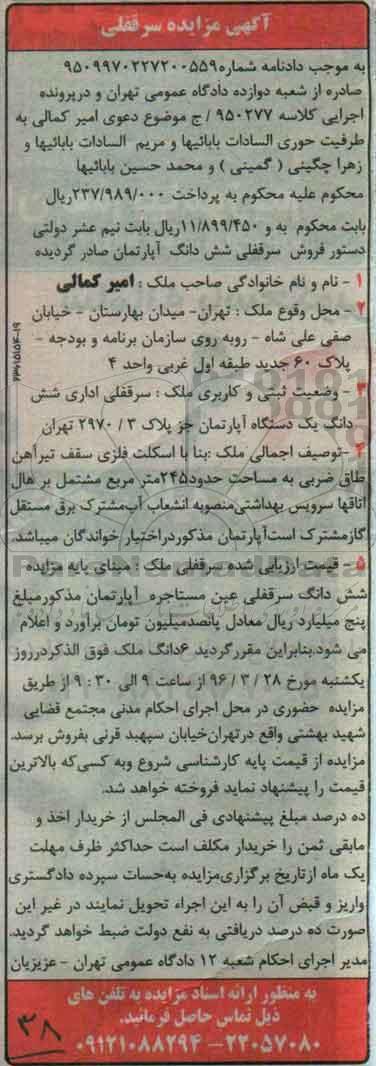 آگهی مزایده سرقفلی
به موجب دادنامه شماره ۹۵۰۹۹۷۰۲۲۷۲۰۰۵۵۹
صادره از شعبه دوازده دادگاه عمومی تهران و درپرونده
اجرایی کلاسه ۹۵۰۲۷۷ / ج موضوع دعوی امیر کمالی به
طرفیت حوری السادات بابائیها و مریم السادات بابائیها و
زهرا چگینی ( گمینی ) و محمد حسین بابائیها
محکوم علیه محکوم به پرداخت ۲۳۷/۹۸۹/۰۰۰ریال
بابت محکوم به و ۱۱/۸۹۹/۴۵۰ریال بابت نیم عشر دولتی
دستور فروش سرقفلی شش دانگ آپارتمان صادر گردیده
۱ - نام و نام خانوادگی صاحب ملک : امیر کمالی
۲ - محل وقوع ملک : تهران- میدان بهارستان - خیابان
صفی علی شاه - روبه روی سازمان برنامه و بودجه -
پلاک ۶۰ جدید طبقه اول غربی واحد ۴
۳ - وضعیت ثبتی و کاربری ملک : سرقفلی اداری شش
دانگ یک دستگاه آپارتمان جز پلاک ۳ / ۲۹۷۰ تهران
۴ -توصیف اجمالی ملک :بنا با اسکلت فلزی سقف تیرآهن
طاق ضربی به مساحت حدود۲۴۵متر مربع مشتمل بر هال
اتاقها سرویس بهداشتی منصوبه انشعاب آب مشترک برق مستقل
گازمشترک است آپارتمان مذکور دراختیار خواندگان میباشد.
۵ - قیمت ارزیابی شده سرقفلی ملک : مبنای پایه مزایده
شش دانگ سرقفلی عین مستاجره آپارتمان مذکورمبلغ
پنج میلیارد ریال معادل پانصدمیلیون تومان برآورد و اعلام
می شود.بنابراین مقررگردید ۶دانگ ملک فوق الذکردرروز
یکشنبه مورخ ۲۸ / ۳ / ۹۶ از ساعت ۹ الی ۳۰ : ۹ از طریق
مزایده حضوری در محل اجرای احکام مدنی مجتمع قضایی
شهید بهشتی واقع درتهران خیابان سپهبد قرنی بفروش برسد.
مزایده از قیمت پایه کارشناسی شروع وبه کسی که بالاترین
قیمت را پیشنهاد نماید فروخته خواهد شد.
ده درصد مبلغ پیشنهادی فی المجلس از خریدار اخذ و
مابقی ثمن را خریدار مکلف است حداکثر ظرف مهلت
یک ماه ازتاریخ برگزاری مزایده به حساب سپرده دادگستری
واریز و قبض آن را به این اجراء تحویل نمایند در غیر این
صورت ده درصد دریافتی به نفع دولت ضبط خواهد گردید.
مدیر اجرای احکام شعبه ۱۲ دادگاه عمومی تهران - عزیزیان
به منظور ارائه اسناد مزایده به تلفن های
ذیل تماس حاصل فرمائید.
۰۹۱۲۱۰۸۸۲۹۴ - ۲۲۰۵۷۰۸۰
۳۸